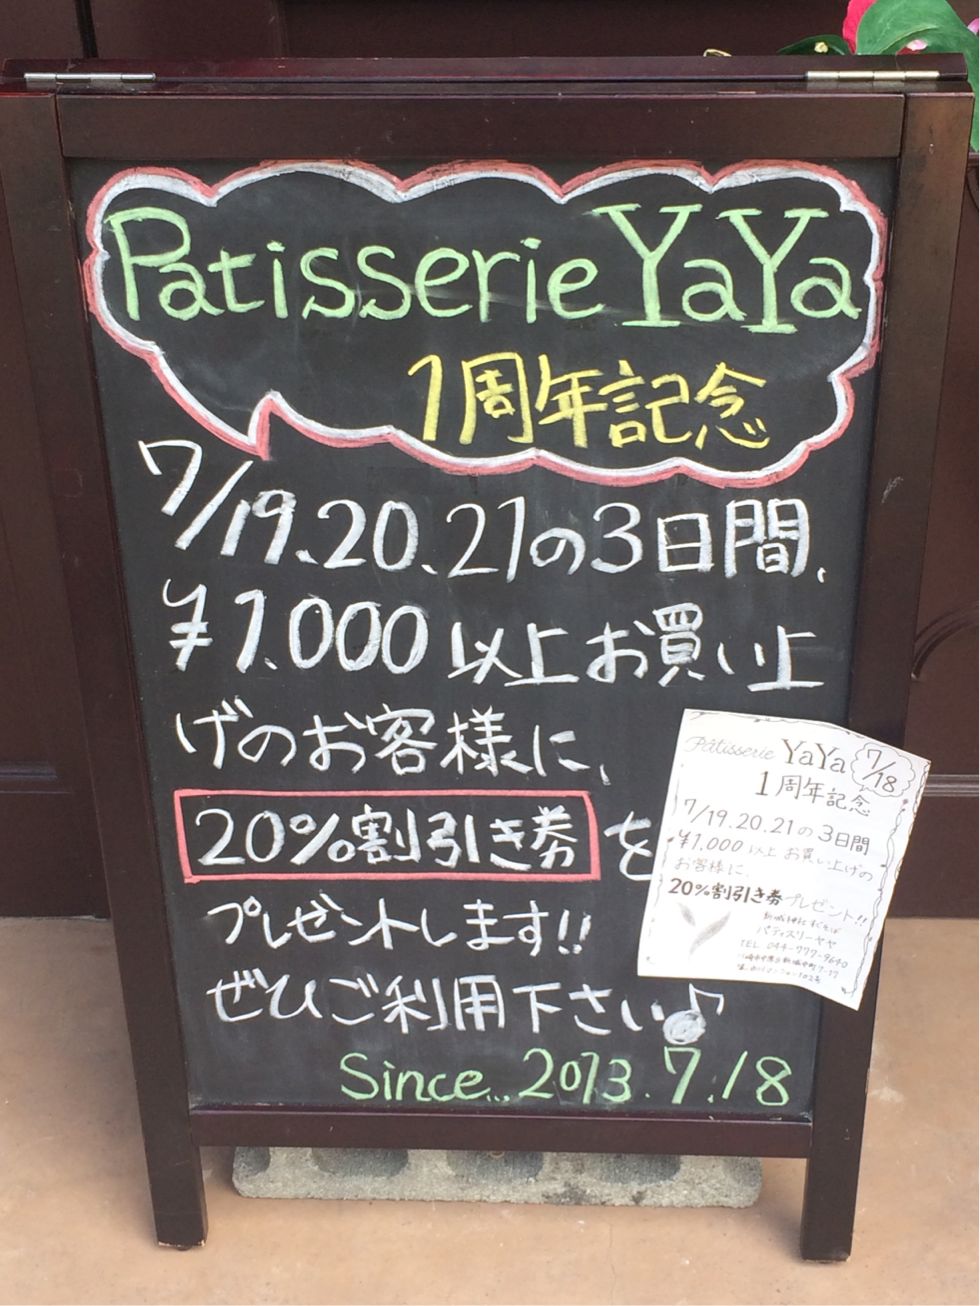 Patisserie YaYa
1周年記念
7/19.20.21の3日間、
¥1.000以上お買い上
げのお客様に、
20%割引き券を
プレゼントします!!
ぜひご利用下さい♪
Since...2013.7.18
Pâtisserie YaYa
7/18
1周年記念
7/19.20.21の3日間
¥1,000以上お買い上げの
お客様に、
20%割引き券プレゼント!!
新城神社すぐそば
パティスリーヤヤ
TEL 044-777-9640